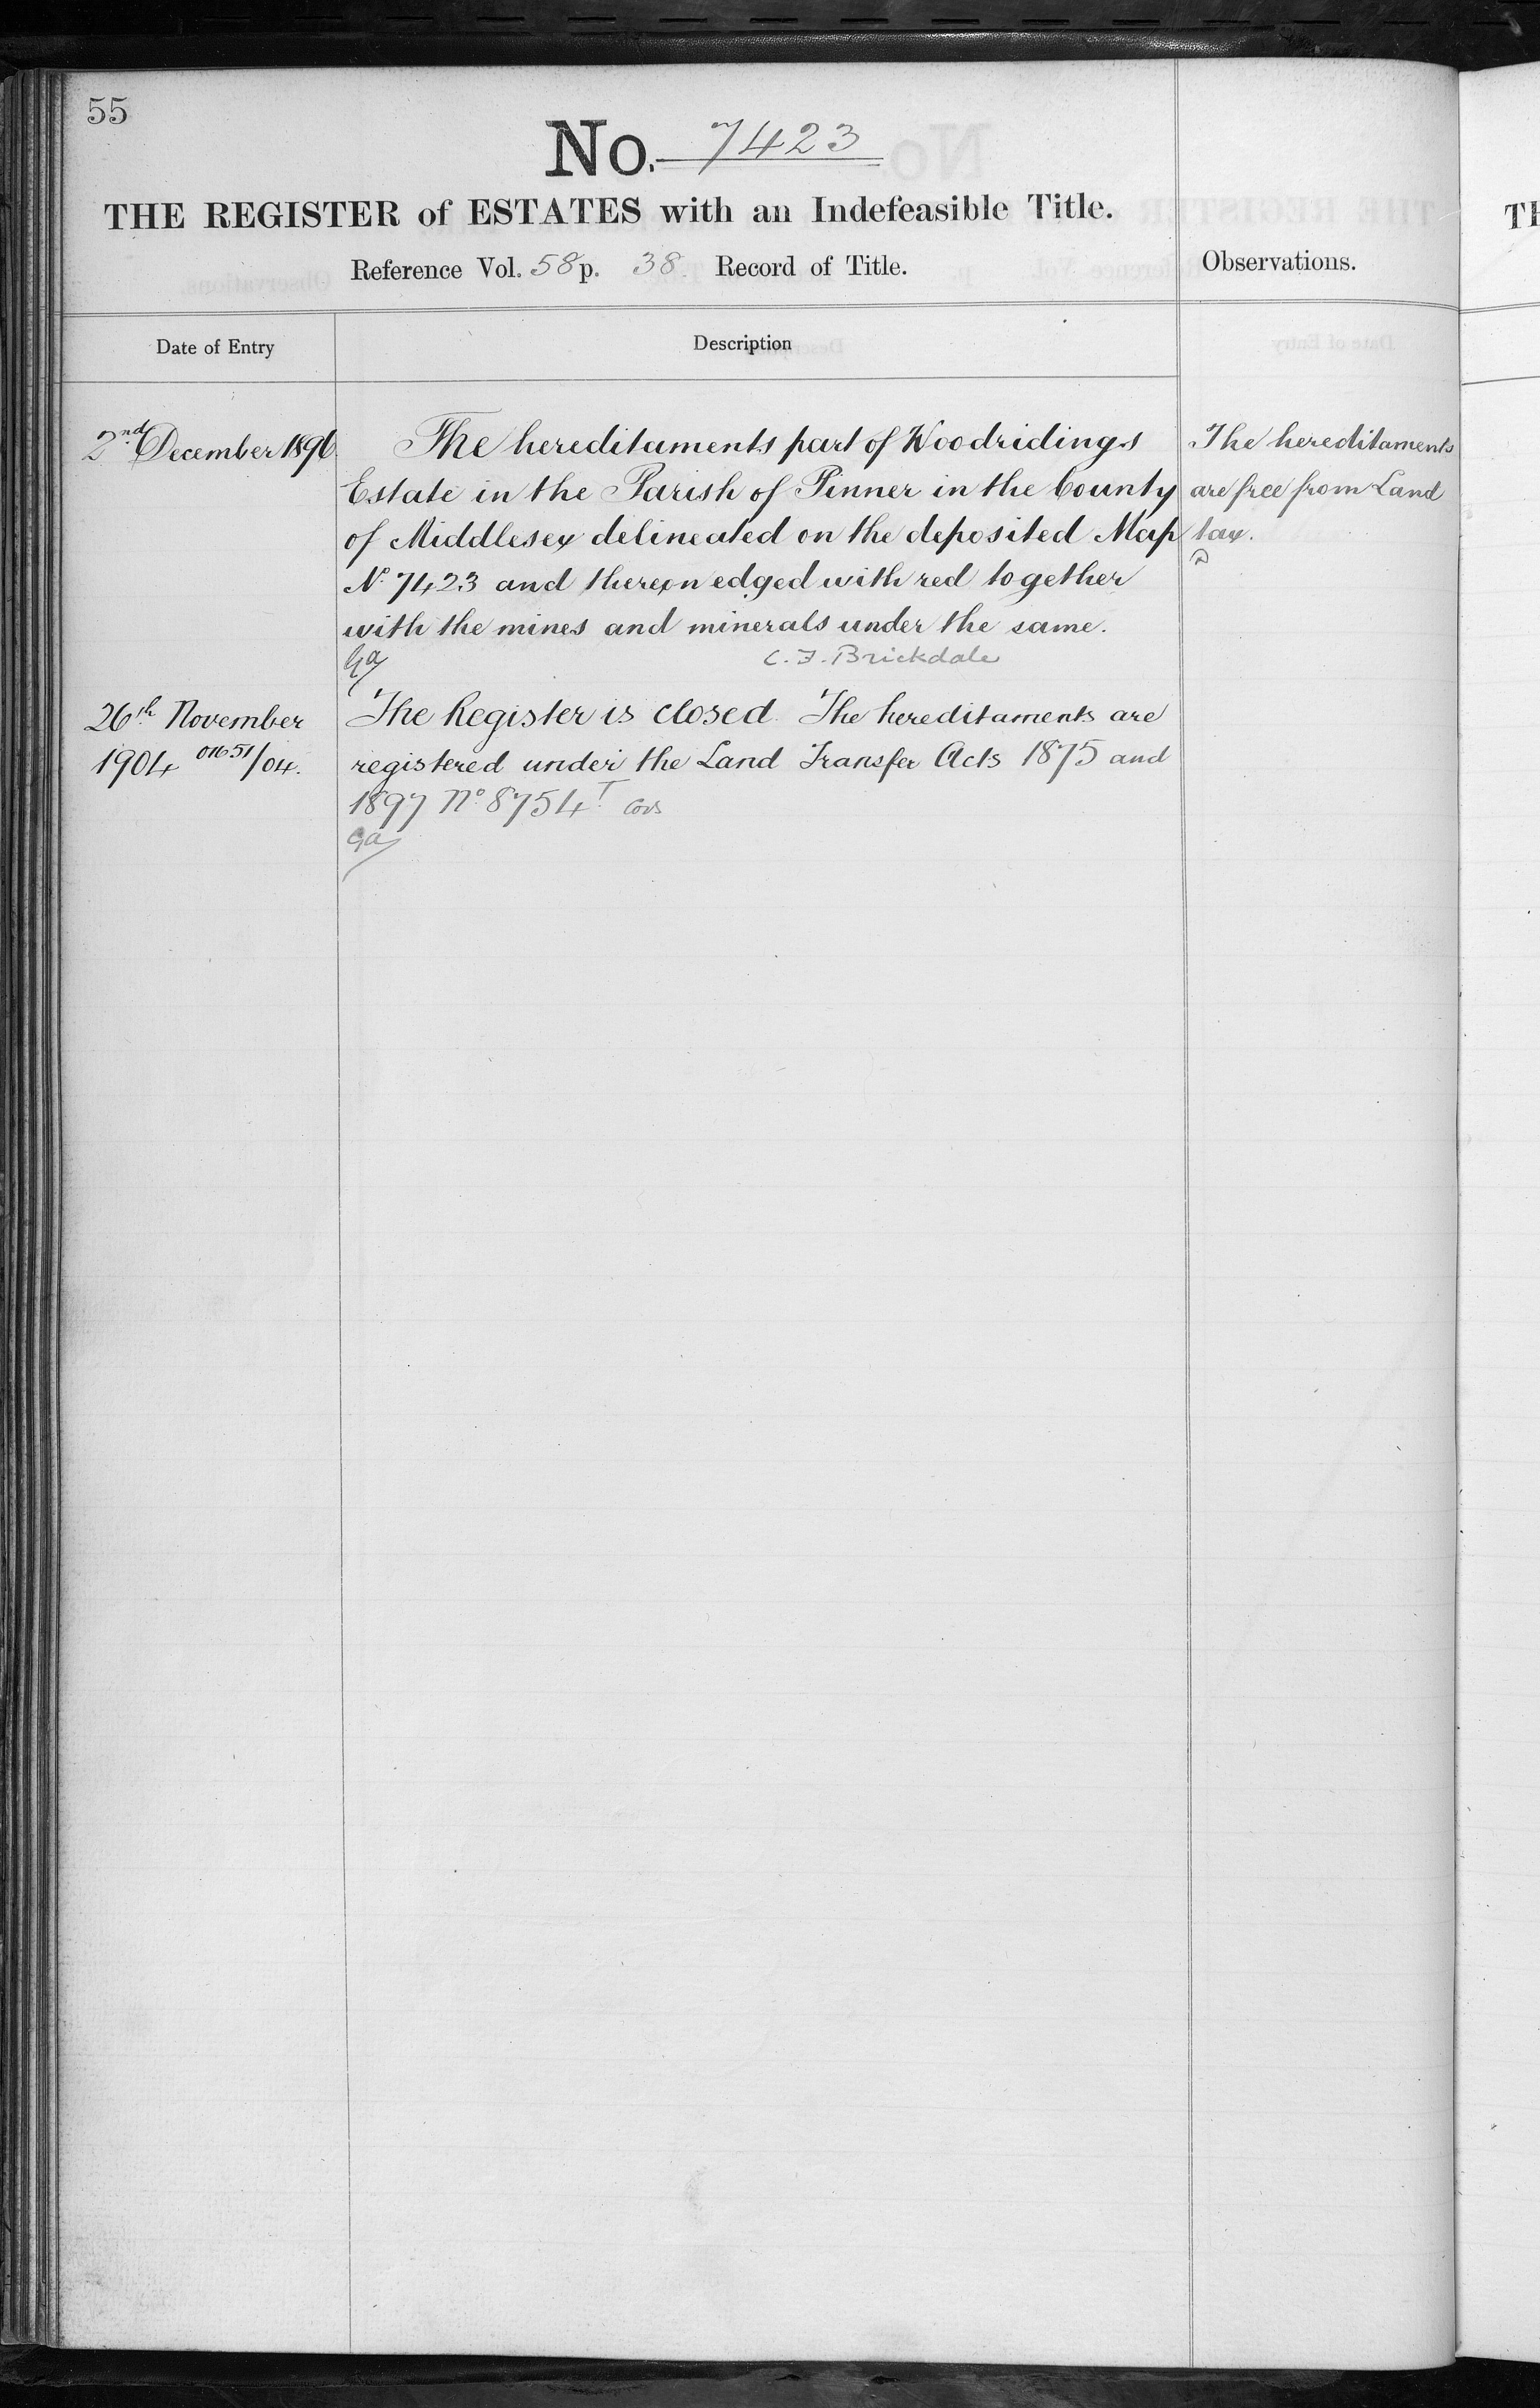 55
No. 7423
THE REGISTER of ESTATES with an Indefeasible Title.
Reference Vol. 58 p. 38 Record of Title.
Observations.
Date of Entry
Description
2nd December 1896.
The hereditaments part of Woodridings
Estate in the Parish of Pinner in the County
of Middlesex delineated on the deposited Map
No. 7423 and thereon edged with red together
with the mines and minerals under the same.
C. F. Brickdale
The hereditaments
are free from Land
tax.
26th November
1904 01651/04.
The Register is closed. The hereditaments are
registered under the Land Transfer Acts 1875 and
1897 No. 8754T
Ga
TH